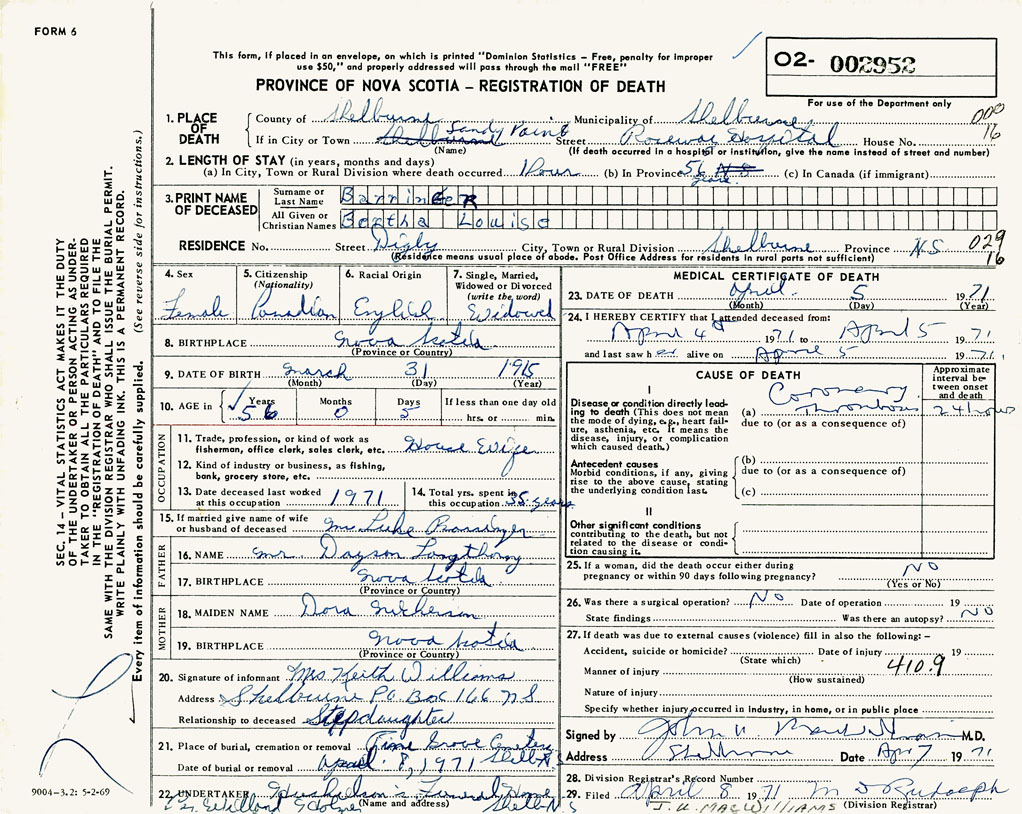 FORM 6
This form, if placed in an envelope, on which is printed "Dominion Statistics – Free, penalty for improper
use $50," and properly addressed will pass through the mail "FREE"
PROVINCE OF NOVA SCOTIA – REGISTRATION OF DEATH
O2- 002952
For use of the Department only
1. PLACE OF DEATH County of Shelburne Municipality of Shelburne 000
If in City or Town Shelburne Sandy Point Street Roseway Hospital House No. 16
(Name) (If death occurred in a hospital or institution, give the name instead of street and number)
2. LENGTH OF STAY (in years, months and days)
(a) In City, Town or Rural Division where death occurred 1 Hour (b) In Province 56 years N S (c) In Canada (if immigrant)
3. PRINT NAME OF DECEASED
Surname or Last Name Barringer
All Given or Christian Names Bertha Louise
RESIDENCE No. Street Digby City, Town or Rural Division Shelburne Province N.S 029
16
(Residence means usual place of abode. Post Office Address for residents in rural parts not sufficient)
4. Sex Female
5. Citizenship (Nationality) Canadian
6. Racial Origin English
7. Single, Married, Widowed or Divorced (write the word) Widowed
8. BIRTHPLACE Nova Scotia
(Province or Country)
9. DATE OF BIRTH March 31 1915
(Month) (Day) (Year)
10. AGE in Years 56 Months 0 Days 5 If less than one day old hrs. or min.
OCCUPATION
11. Trade, profession, or kind of work as
fisherman, office clerk, sales clerk, etc. House Wife
12. Kind of industry or business, as fishing,
bank, grocery store, etc.
13. Date deceased last worked
at this occupation 1971
14. Total yrs. spent in
this occupation 35 years
15. If married give name of wife
or husband of deceased Mr. Luke Barringer
FATHER
16. NAME Mr.
17. BIRTHPLACE Nova Scotia
(Province or Country)
MOTHER
18. MAIDEN NAME Dora
19. BIRTHPLACE Nova Scotia
(Province or Country)
20. Signature of informant Mrs Keith Williams
Address Shelburne PO Box 166 N S
Relationship to deceased Stepdaughter
21. Place of burial, cremation or removal Pine Grove Cemetery
Date of burial or removal April 8, 1971
22. UNDERTAKER Funeral Home
(Name and address)
MEDICAL CERTIFICATE OF DEATH
23. DATE OF DEATH April 5 1971
(Month) (Day) (Year)
24. I HEREBY CERTIFY that I attended deceased from:
April 4 1971 to April 5 1971
and last saw her alive on April 5 1971
CAUSE OF DEATH
Approximate interval between onset and death
I
Disease or condition directly leading
to death (This does not mean
the mode of dying, e.g., heart failure,
asthenia, etc. It means the
disease, injury, or complication
which caused death.)
(a) Coronary Thrombosis 24 hours
due to (or as a consequence of)
Antecedent causes
Morbid conditions, if any, giving
rise to the above cause, stating
the underlying condition last.
(b)
due to (or as a consequence of)
(c)
II
Other significant conditions
contributing to the death, but not
related to the disease or condition
causing it.
25. If a woman, did the death occur either during
pregnancy or within 90 days following pregnancy? NO
(Yes or No)
26. Was there a surgical operation? NO Date of operation 19
State findings Was there an autopsy? NO
27. If death was due to external causes (violence) fill in also the following: –
Accident, suicide or homicide? Date of injury 19
(State which)
Manner of injury 410.9
(How sustained)
Nature of injury
Specify whether injury occurred in industry, in home, or in public place
Signed by John M.D.
Address Shelburne Date Apr 7 1971
28. Division Registrar's Record Number
29. Filed April 8 1971 M J Rudolph
J. U. MACWILLIAMS (Division Registrar)
SEC. 14 – VITAL STATISTICS ACT MAKES IT THE DUTY
OF THE UNDERTAKER OR PERSON ACTING AS UNDER-
TAKER TO OBTAIN ALL THE PARTICULARS REQUIRED
IN THE "REGISTRATION OF DEATH" AND TO FILE THE
SAME WITH THE DIVISION REGISTRAR WHO SHALL ISSUE THE BURIAL PERMIT.
WRITE PLAINLY WITH UNFADING INK. THIS IS A PERMANENT RECORD.
Every item of information should be carefully supplied. (See reverse side for instructions.)
9004-3.2: 5-2-69